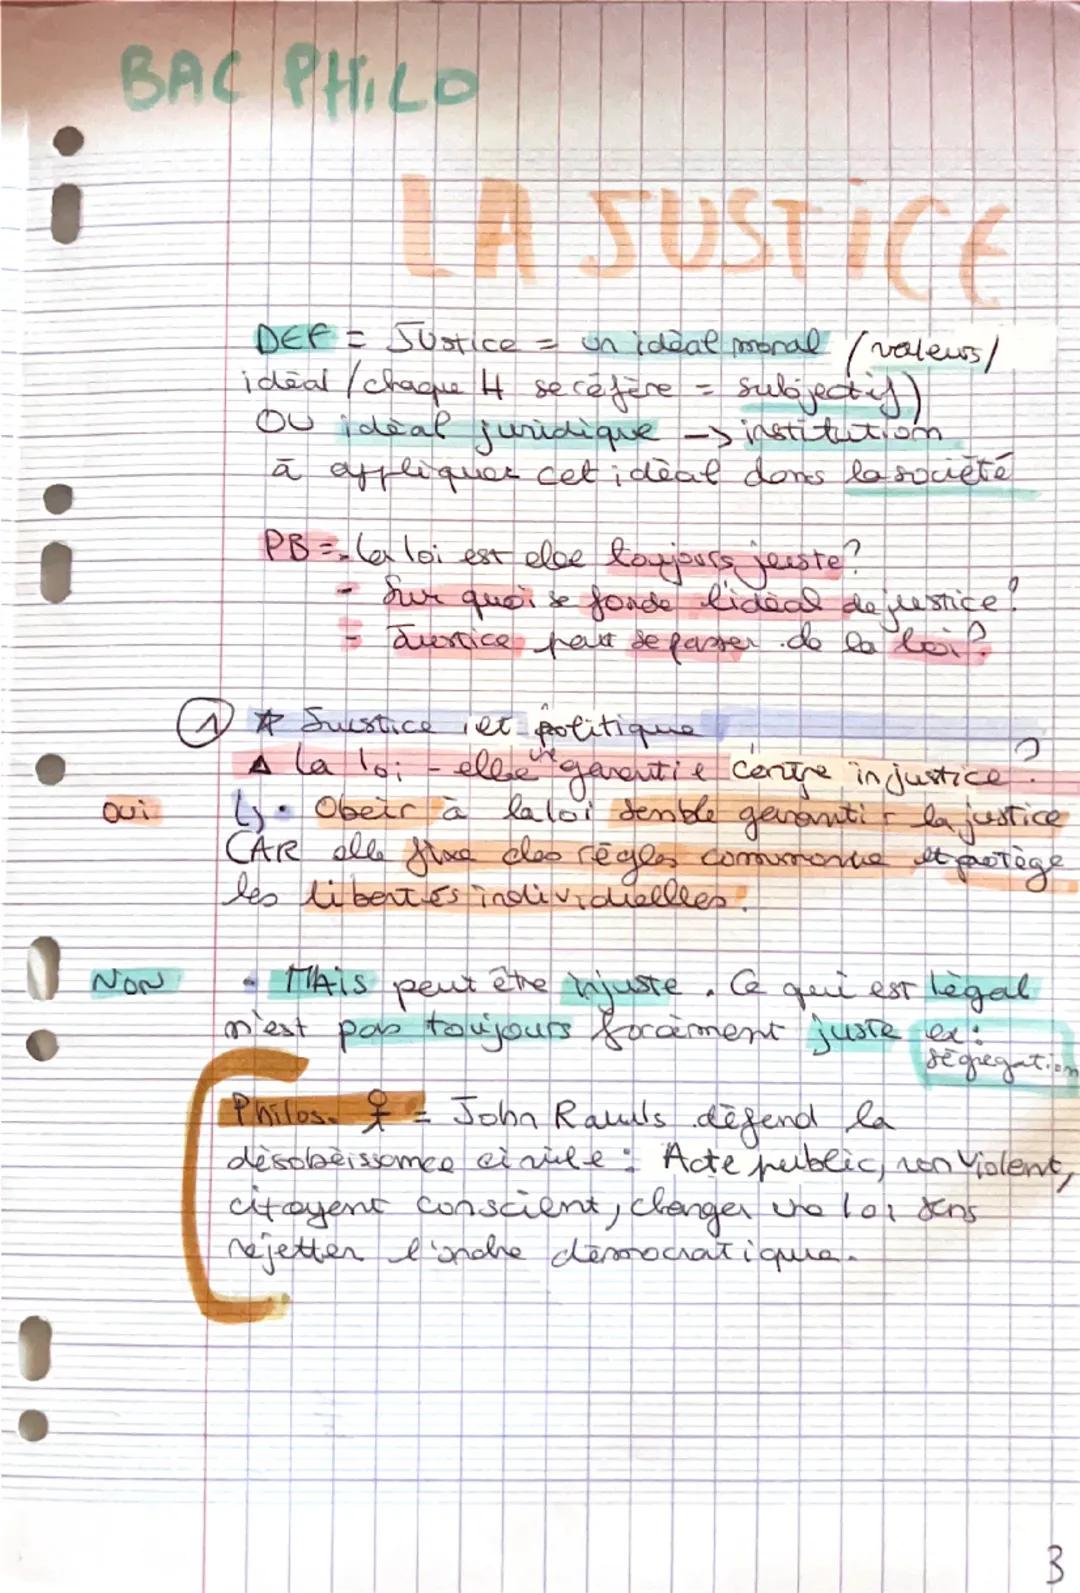 BAC PHiLO
LA JUSTiCE
DEF = JUstice = un idèal moral (valeurs/
idéal / chaque H se réfère = subjectif)
OU idèal juridique -> institution
à appliquer cet idèal dans la société
PB = - la loi est elle toujours juste ?
- Sur quoi se fonde l'idèal de justice ?
- Justice peut se passer de la loi ?
① ☆ Justice et politique
▲ la loi - elle une garantie contre injustice ?
Oui ↳ • Obeir à la loi semble garantir la justice
CAR elle fixe des règles commune et protège
les libertés individuelles.
NON • MAis peut être injuste. Ce qui est lègal
n'est pas toujours forcèment juste ex :
sègregation
Philos. = John Rawls dèfend la
dèsobèissance civile : Acte public, non violent,
citoyent conscient, changer une loi sans
rejetter l'ordre dèmocratique.
3